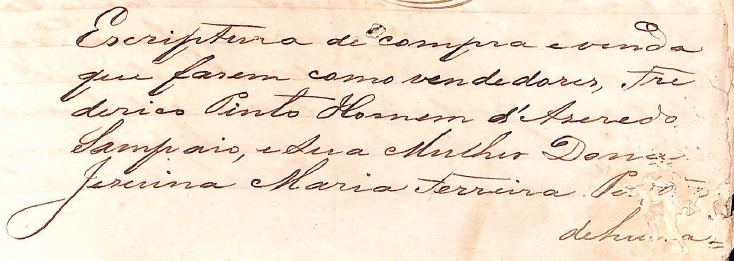 Escriptura de compra e venda
que fasem como vendedores, Fre
derico Pinto Homem d'Aseredo
Sampaio, e Sua Mulher Dona
Maria Ferreira
de huma=